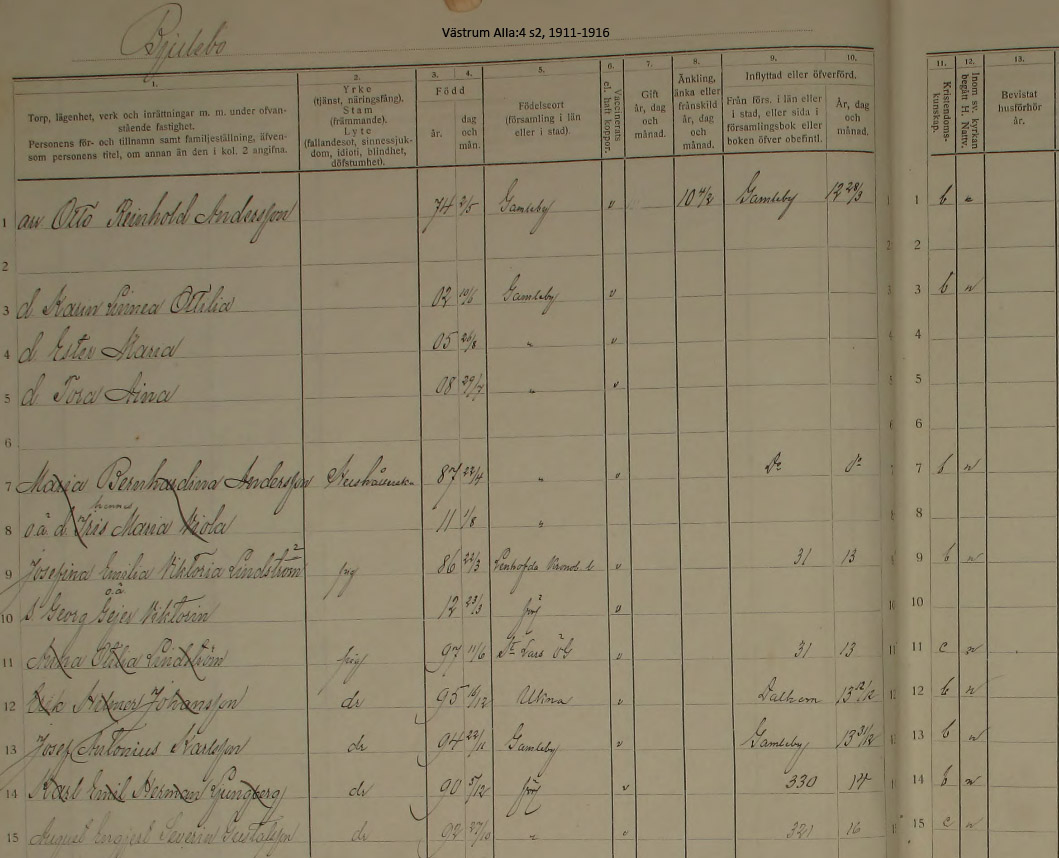 Västrum Alla:4 s2, 1911-1916
1. 2. 3. 4. 5. 6. 7. 8. 9. 10. 11. 12. 13.
Torp, lägenhet, verk och inrättningar m. m. under ofvanstående fastighet.
Personens för- och tillnamn samt familjeställning, äfvensom personens titel, om annan än den i kol. 2 angifna.
Yrke
(tjänst, näringsfång).
Stam
(främmande).
Lyte
(fallandesot, sinnessjukdom, idioti, blindhet, döfstumhet).
Född
år.
dag och mån.
Födelseort
(församling i län eller i stad).
Vaccinerats el. haft koppor.
Gift
år, dag och månad.
Änkling, änka eller frånskild år, dag och månad.
Inflyttad eller öfverförd.
Från förs. i län eller i stad, eller sida i församlingsbok eller boken öfver obefintl.
År, dag och månad.
Kristendomskunskap.
Inom sv. kyrkan begått H. Nattv.
Bevistat husförhör år.
1 arr Otto Reinhold Andersson 74 2/5 Gamleby v 10 4/2 Gamleby 12 28/3 1 b
2 2
3 d Karin Linnea Ottilia 02 10/6 Gamleby v 3 b n
4 d Ester Maria 05 26/8 " v 4
5 d Tora Aina 08 29/7 " v 5
6 6
7 Maria Bernhardina Andersson 87 22/4 " v Do do 7 b n
hennes
8 o.ä d Iris Maria Viola 11 1/8 " 8
9 Josefina Emilia Viktoria Lindström 2 pig 86 22/3 v 31 13 9 b n
o.ä
10 s Georg Gejer Viktorin 12 23/3 förs v 10
11 Anna Otilia Lindström pig 97 11/6 St Lars ÖG v 31 13 11 c n
12 Erik Helmer Johansson dr 95 19/12 Ukna v Dalhem 12 b n
13 Josef Antonius Karlsson dr 94 22/11 Gamleby v Gamleby 13 31/12 13 b n
14 Karl Emil Herman Ljungberg dr 90 5/12 förs v 330 14 14 b n
15 August Severin Gustafsson dr 92 27/10 " v 321 16 15 c n